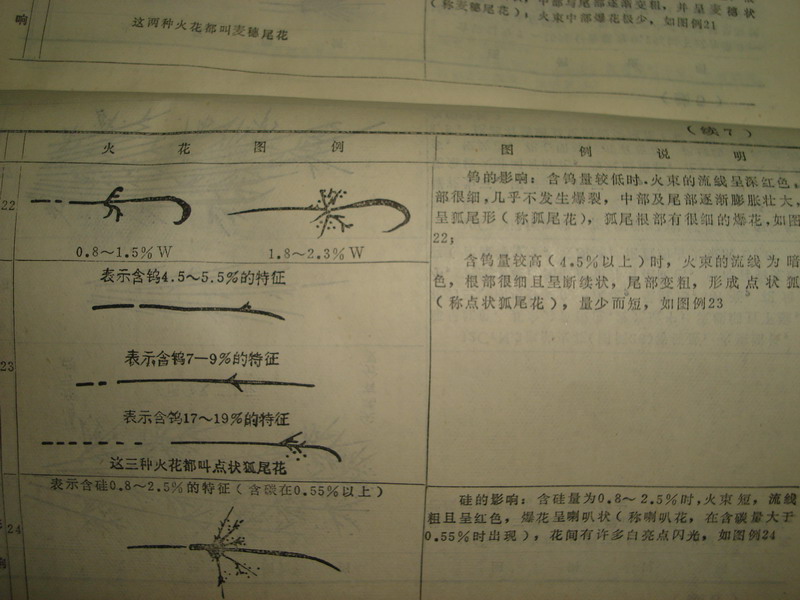 响
这两种火花都叫麦穗尾花
中部与尾部逐渐变粗，并呈麦穗状
（称麦穗尾花），火束中部爆花极少，如图例21
（续7）
火 花 图 例
图 例 说 明
22
0.8～1.5% W
1.8～2.3% W
钨的影响：含钨量较低时，火束的流线呈深红色，
部很细，几乎不发生爆裂，中部及尾部逐渐膨胀壮大，
呈狐尾形（称狐尾花），狐尾根部有很细的爆花，如图
22；
含钨量较高（4.5%以上）时，火束的流线为暗
色，根部很细且呈断续状，尾部变粗，形成点状狐
（称点状狐尾花），量少而短，如图例23
23
表示含钨4.5～5.5%的特征
表示含钨7—9%的特征
表示含钨17～19%的特征
这三种火花都叫点状狐尾花
24
表示含硅0.8～2.5%的特征（含碳在0.55%以上）
硅的影响：含硅量为0.8～2.5%时，火束短，流线
粗且呈红色，爆花呈喇叭状（称喇叭花，在含碳量大于
0.55%时出现），花间有许多白亮点闪光，如图例24